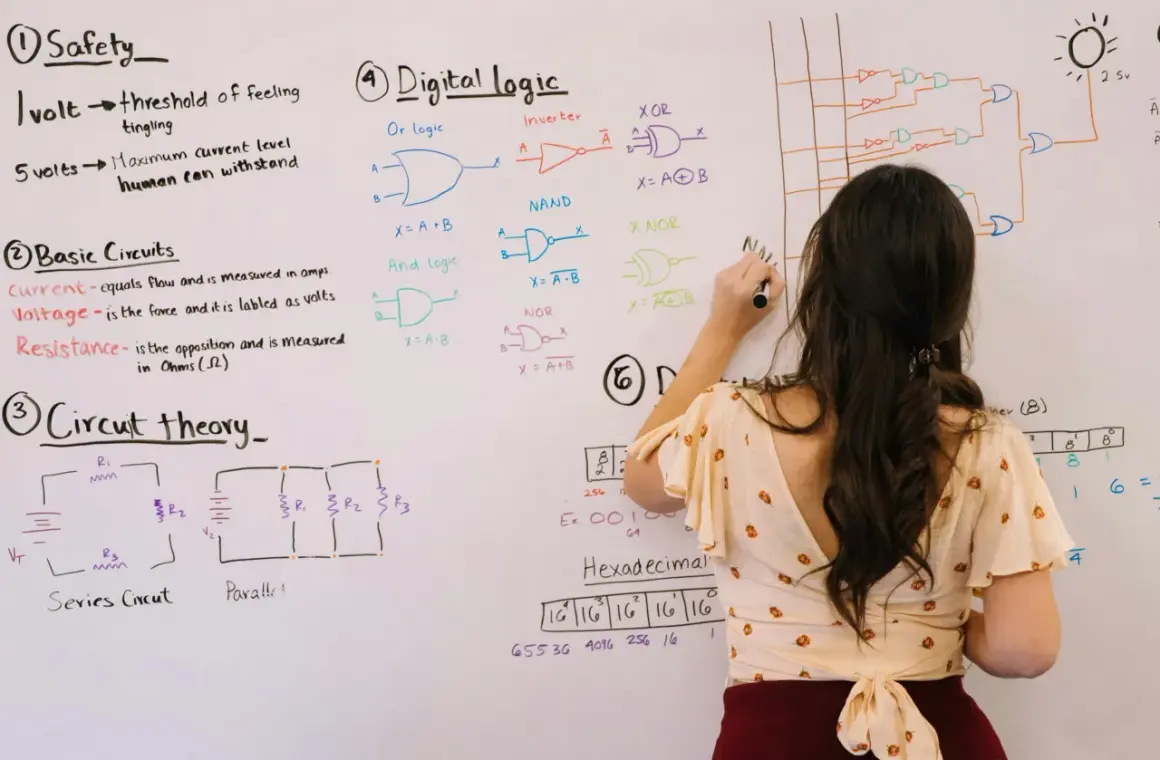 ① Safety
1 volt → threshold of feeling
tingling
5 volts → Maximum current level
human can withstand
② Basic Circuits
Current - equals flow and is measured in amps
Voltage - is the force and it is labled as volts
Resistance - is the opposition and is measured
in Ohms (Ω)
③ Circuit theory
R1
R2
R3
VT
Series Circut
V2
R1
R2
R3
Parallel
④ Digital logic
Or logic
A
B
X
X = A + B
And logic
A
B
X
X = A · B
Inverter
A
A̅
NAND
A
B
X
X = A̅ ̅·̅ ̅B̅
NOR
A
B
X
X = A̅ ̅+̅ ̅B̅
XOR
A
B
X
X = A ⊕ B
X NOR
X = A̅ ̅⊕̅ ̅B̅
2 5v
A̅
⑤ D
(8)
8¹
8⁰
8
1
1 6 =
4
256
Ex 001
64
Hexadecimal
16⁴ 16³ 16² 16¹ 16⁰
65536 4096 256 16 1